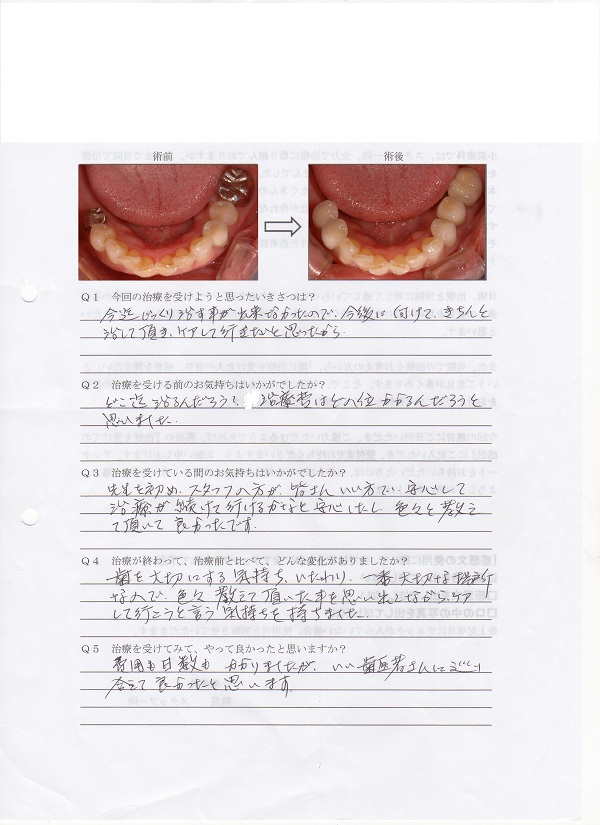 術前
術後
Q1 今回の治療を受けようと思ったいきさつは？
今迄じっくり治す事が出来なかったので、今後に向けて、きちんと
治して頂き、ケアして行きたいと思ったから。
Q2 治療を受ける前のお気持ちはいかがでしたか？
どこ迄治るんだろう？ 治療費はどの位かかるんだろうと
思いました。
Q3 治療を受けている間のお気持ちはいかがでしたか？
先生を初め、スタッフの方が、皆さんいい方で、安心して
治療が続けて行けるかなと安心したし、色々と教え
て頂いて良かったです。
Q4 治療が終わって、治療前と比べて、どんな変化がありましたか？
歯を大切にする気持ち、いたわり、一番大切な場所
なので、色々教えて頂いた事を思い出しながら、ケア
して行こうと言う気持ちを持ちました。
Q5 治療を受けてみて、やって良かったと思いますか？
費用も日数もかかりましたが、いい歯医者さんにめぐり
会えて良かったと思います。